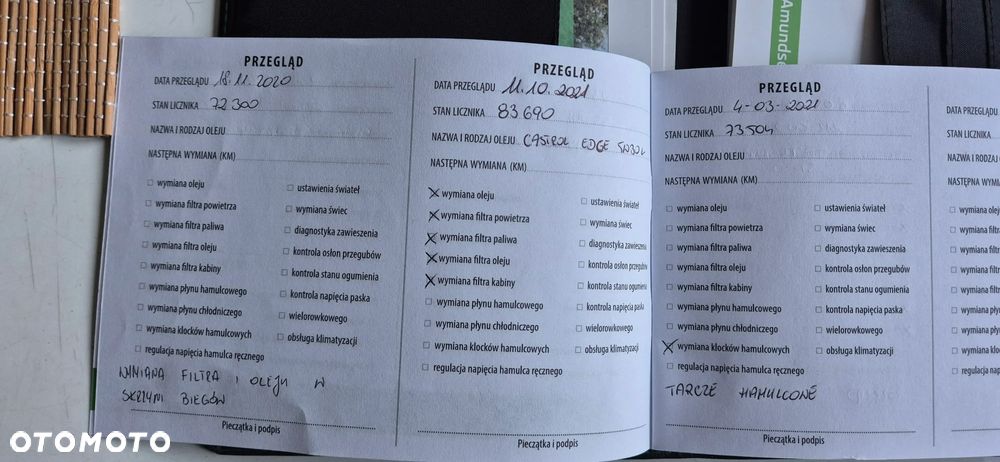 PRZEGLĄD
DATA PRZEGLĄDU 18.11.2020
STAN LICZNIKA 72 300
NAZWA I RODZAJ OLEJU
NASTĘPNA WYMIANA (KM)
wymiana oleju
wymiana filtra powietrza
wymiana filtra paliwa
wymiana filtra oleju
wymiana filtra kabiny
wymiana płynu hamulcowego
wymiana płynu chłodniczego
wymiana klocków hamulcowych
regulacja napięcia hamulca ręcznego
ustawienia świateł
wymiana świec
diagnostyka zawieszenia
kontrola osłon przegubów
kontrola stanu ogumienia
kontrola napięcia paska
wielorowkowego
obsługa klimatyzacji
WYMIANA FILTRA I OLEJU W
SKRZYNI BIEGÓW
Pieczątka i podpis
PRZEGLĄD
DATA PRZEGLĄDU 11.10.2021
STAN LICZNIKA 83 690
NAZWA I RODZAJ OLEJU CASTROL EDGE 5W30
NASTĘPNA WYMIANA (KM)
wymiana oleju
wymiana filtra powietrza
wymiana filtra paliwa
wymiana filtra oleju
wymiana filtra kabiny
wymiana płynu hamulcowego
wymiana płynu chłodniczego
wymiana klocków hamulcowych
regulacja napięcia hamulca ręcznego
ustawienia świateł
wymiana świec
diagnostyka zawieszenia
kontrola osłon przegubów
kontrola stanu ogumienia
kontrola napięcia paska
wielorowkowego
obsługa klimatyzacji
Pieczątka i podpis
PRZEGLĄD
DATA PRZEGLĄDU 4-03-2021
STAN LICZNIKA 73504
NAZWA I RODZAJ OLEJU
NASTĘPNA WYMIANA (KM)
wymiana oleju
wymiana filtra powietrza
wymiana filtra paliwa
wymiana filtra oleju
wymiana filtra kabiny
wymiana płynu hamulcowego
wymiana płynu chłodniczego
wymiana klocków hamulcowych
regulacja napięcia hamulca ręcznego
ustawienia świateł
wymiana świec
diagnostyka zawieszenia
kontrola osłon przegubów
kontrola stanu ogumienia
kontrola napięcia paska
wielorowkowego
obsługa klimatyzacji
TARCZE HAMULCOWE
Pieczątka i podpis
DATA PRZE
STAN LICZNIKA
NAZWA I R
NASTĘPNA WYMI
wymiana olej
wymiana filt
wymiana filt
wymiana filt
wymiana filt
wymiana pły
wymiana pły
wymiana klo
regulacja nap
Amundse
OTOMOTO